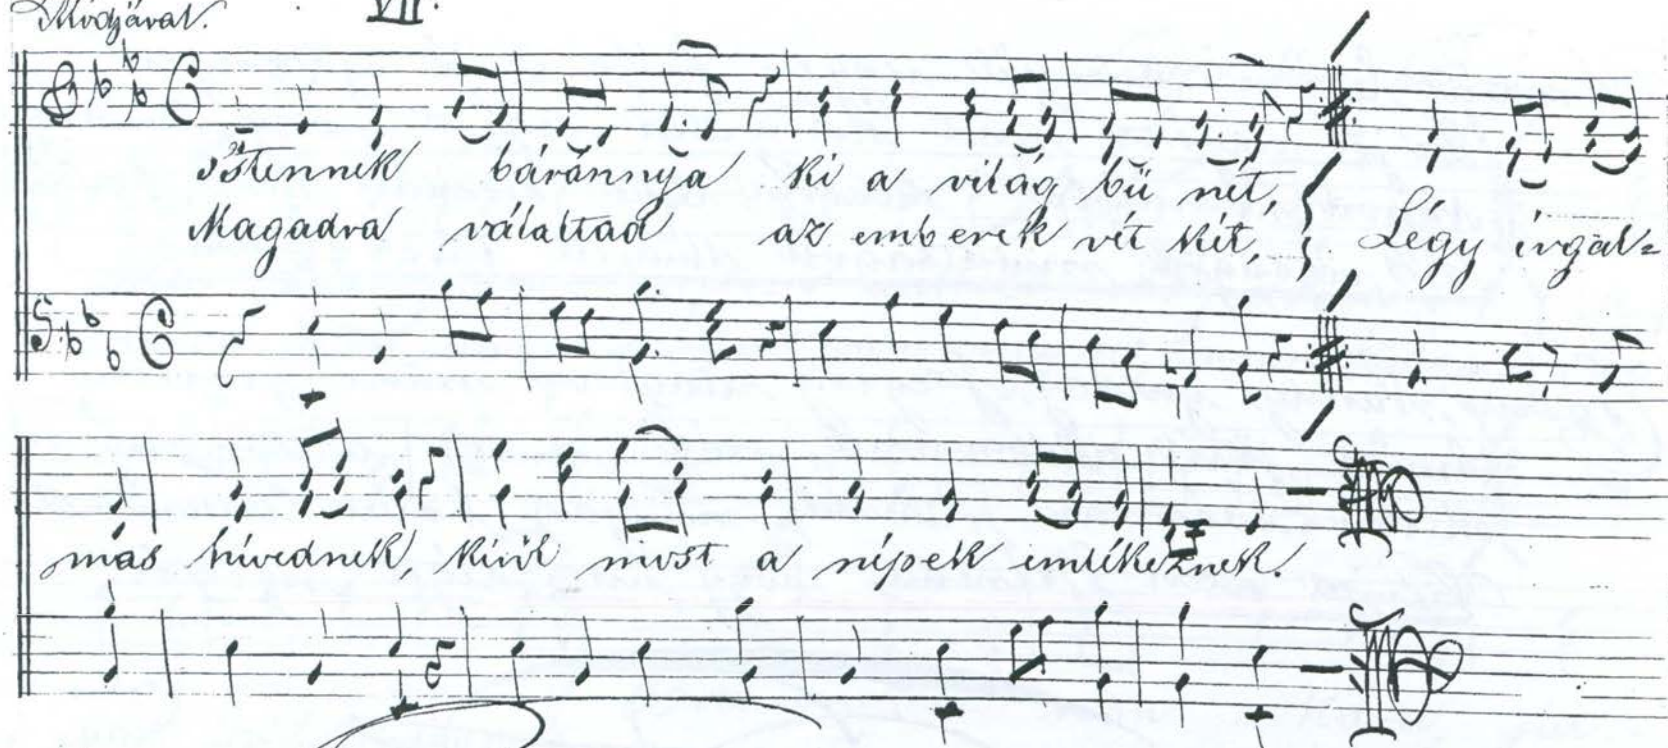 Módjával. VII.
Istennek báránnya ki a világ bű nét,
Magadra válaltad az emberek vét két, Légy irgal=
mas hívednek, kiről most a népek emlékeznek.